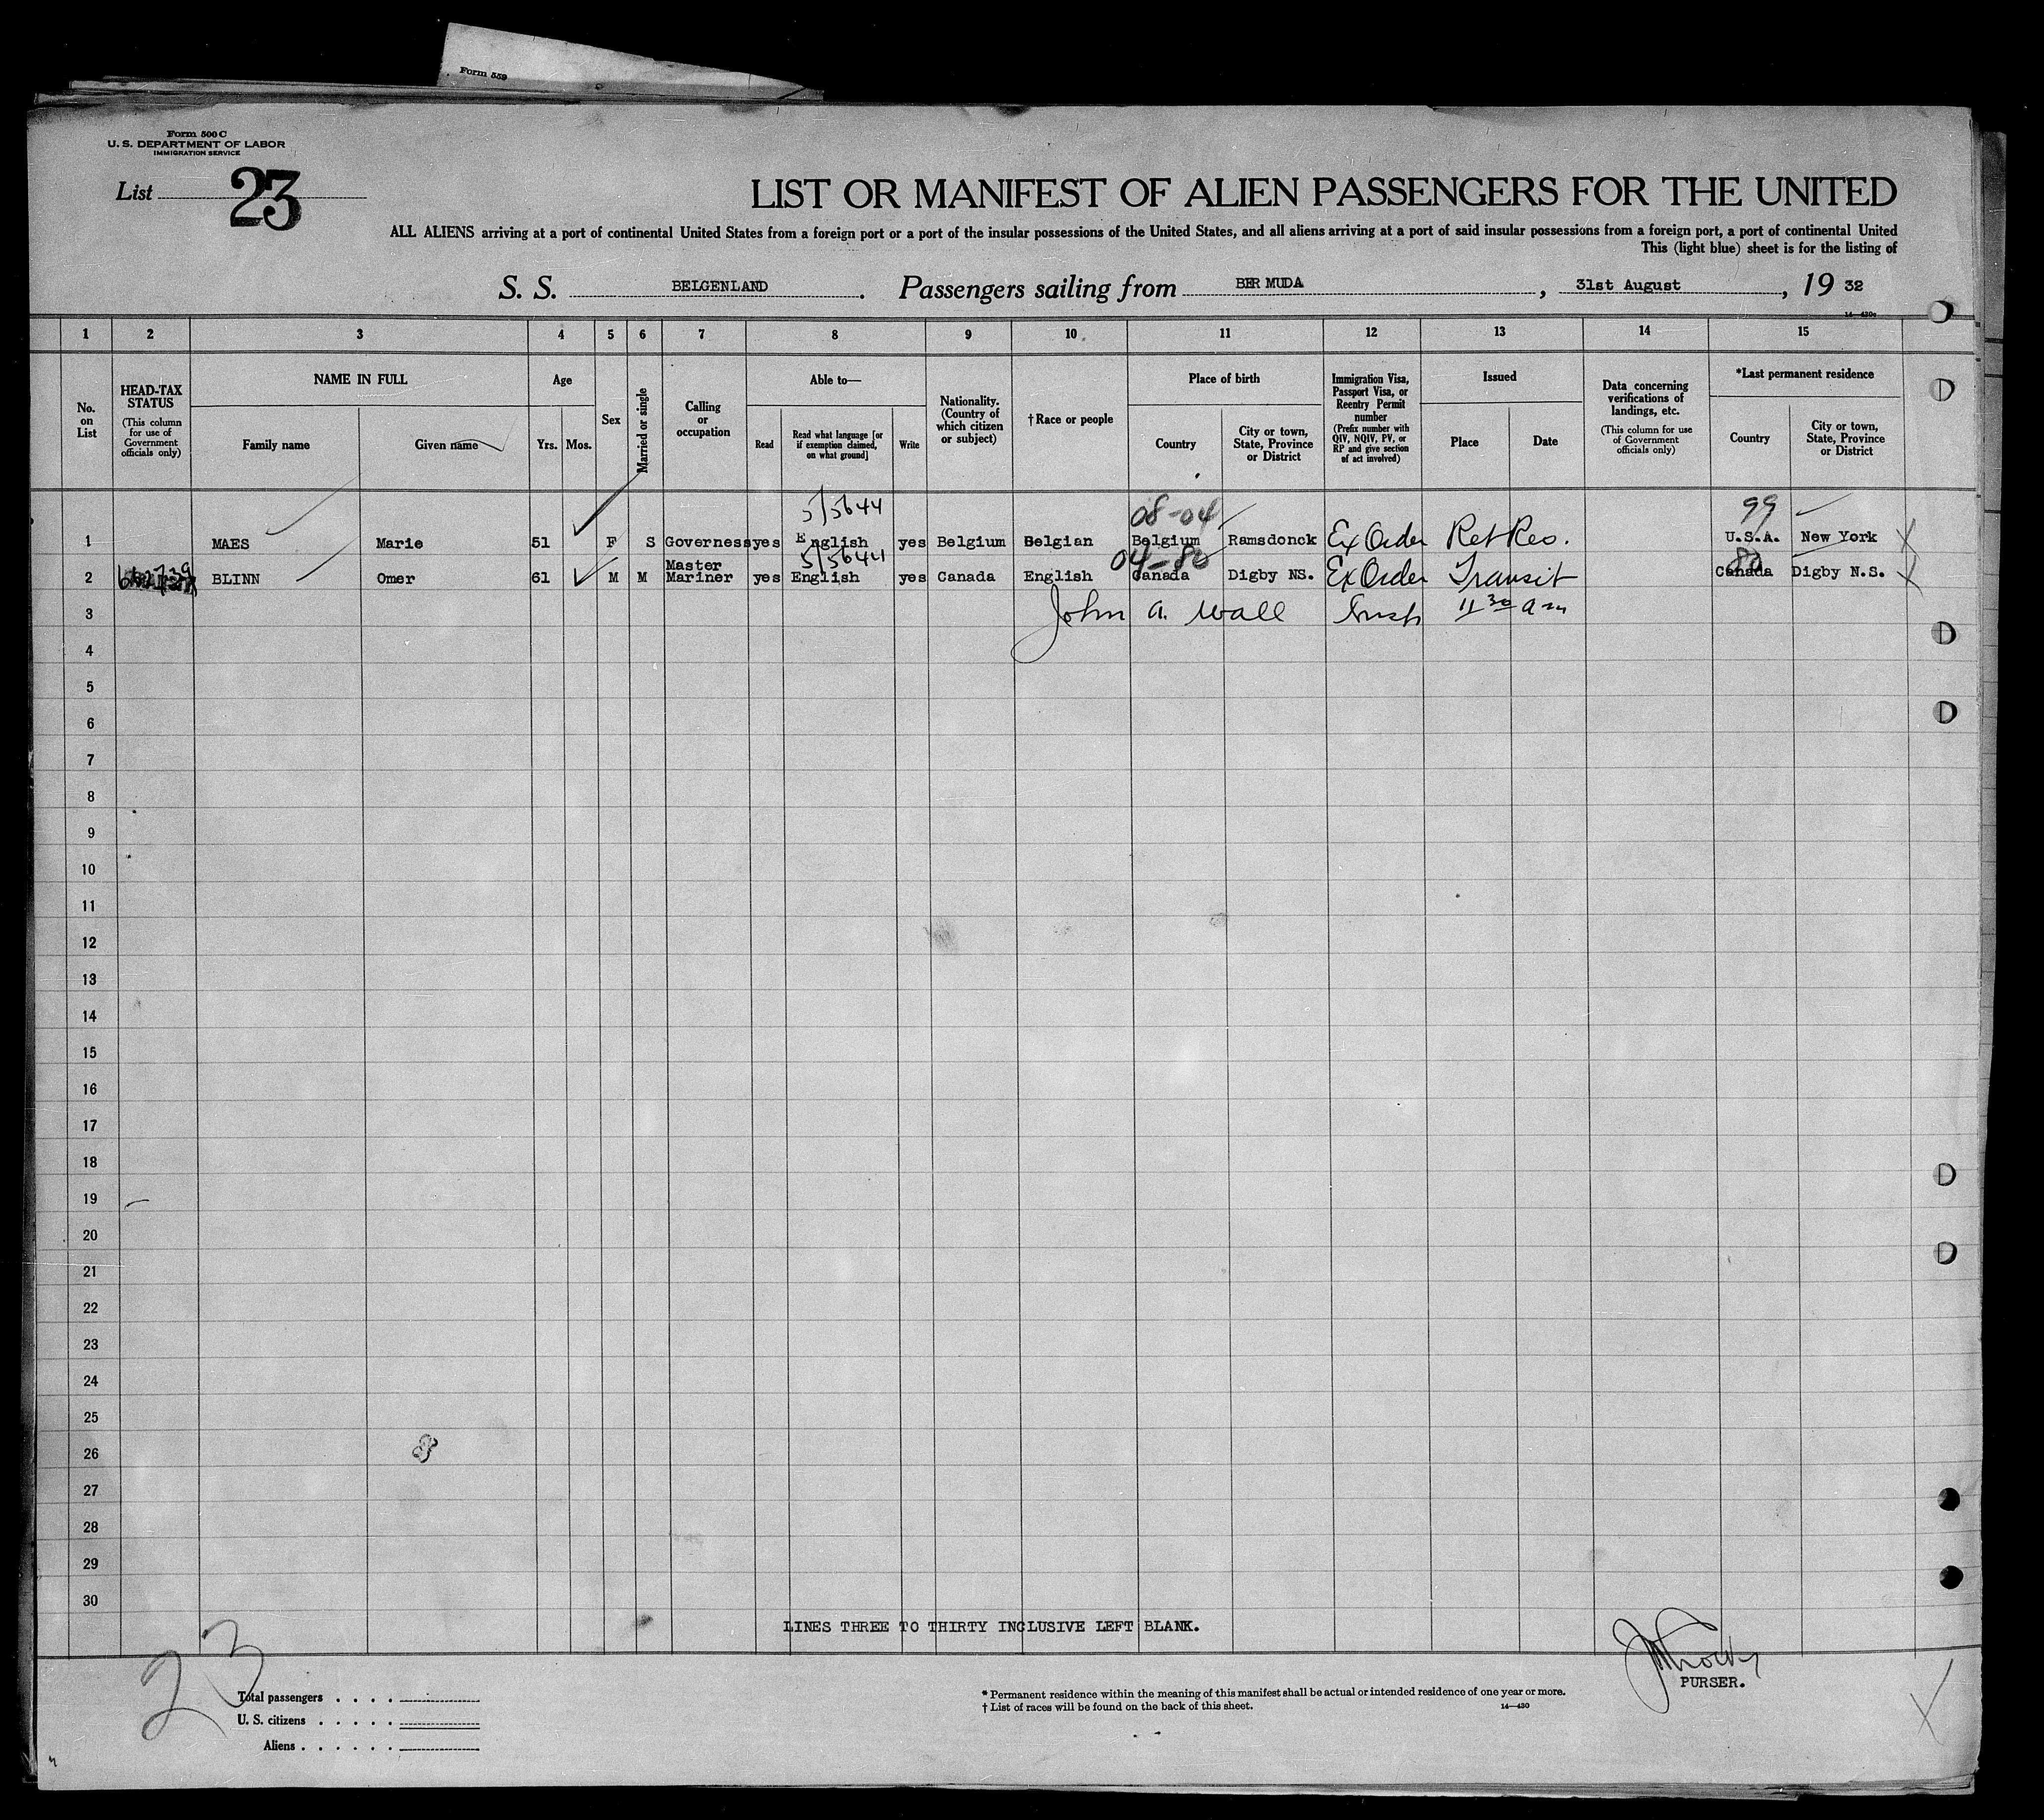 Form 559
Form 500 C
U. S. DEPARTMENT OF LABOR
IMMIGRATION SERVICE
List 23
LIST OR MANIFEST OF ALIEN PASSENGERS FOR THE UNITED
ALL ALIENS arriving at a port of continental United States from a foreign port or a port of the insular possessions of the United States, and all aliens arriving at a port of said insular possessions from a foreign port, a port of continental United
This (light blue) sheet is for the listing of
S. S. BELGENLAND. Passengers sailing from BERMUDA, 31st August, 19 32
14—430c
1 2 3 4 5 6 7 8 9 10 11 12 13 14 15
No. on List
HEAD-TAX STATUS
(This column for use of Government officials only)
NAME IN FULL
Family name Given name
Age
Yrs. Mos.
Sex
Married or single
Calling or occupation
Able to—
Read
Read what language [or if exemption claimed, on what ground]
Write
Nationality. (Country of which citizen or subject)
† Race or people
Place of birth
Country
City or town, State, Province or District
Immigration Visa, Passport Visa, or Reentry Permit number
(Prefix number with QIV, NQIV, PV, or RP and give section of act involved)
Issued
Place Date
Data concerning verifications of landings, etc.
(This column for use of Government officials only)
*Last permanent residence
Country
City or town, State, Province or District
5/5644 08-04 99
1 MAES Marie 51 F S Governess yes English yes Belgium Belgian Belgium Ramsdonck Ex Order Ret Res. U.S.A. New York
5/5644 04-80 80
2 BLINN Omer 61 M M Master Mariner yes English yes Canada English Canada Digby NS. Ex Order Transit Canada Digby N.S.
3 John A. Wall Insp 11 30 am
4
5
6
7
8
9
10
11
12
13
14
15
16
17
18
19
20
21
22
23
24
25
26
27
28
29
30
LINES THREE TO THIRTY INCLUSIVE LEFT BLANK.
23
PURSER.
Total passengers . . . .
U. S. citizens . . . . .
Aliens . . . . . .
* Permanent residence within the meaning of this manifest shall be actual or intended residence of one year or more.
† List of races will be found on the back of this sheet.
14—430